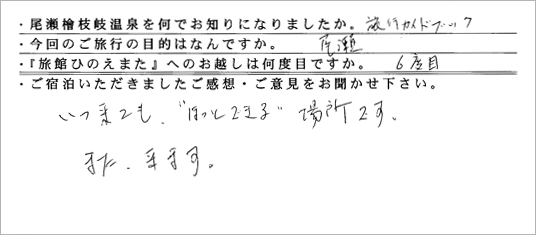 ・尾瀬檜枝岐温泉を何でお知りになりましたか。 旅行ガイドブック
・今回のご旅行の目的はなんですか。 尾瀬
・『旅館ひのえまた』へのお越しは何度目ですか。 6度目
・ご宿泊いただきましたご感想・ご意見をお聞かせ下さい。
いつ来ても、"ほっとできる" 場所です。
また、来ます。